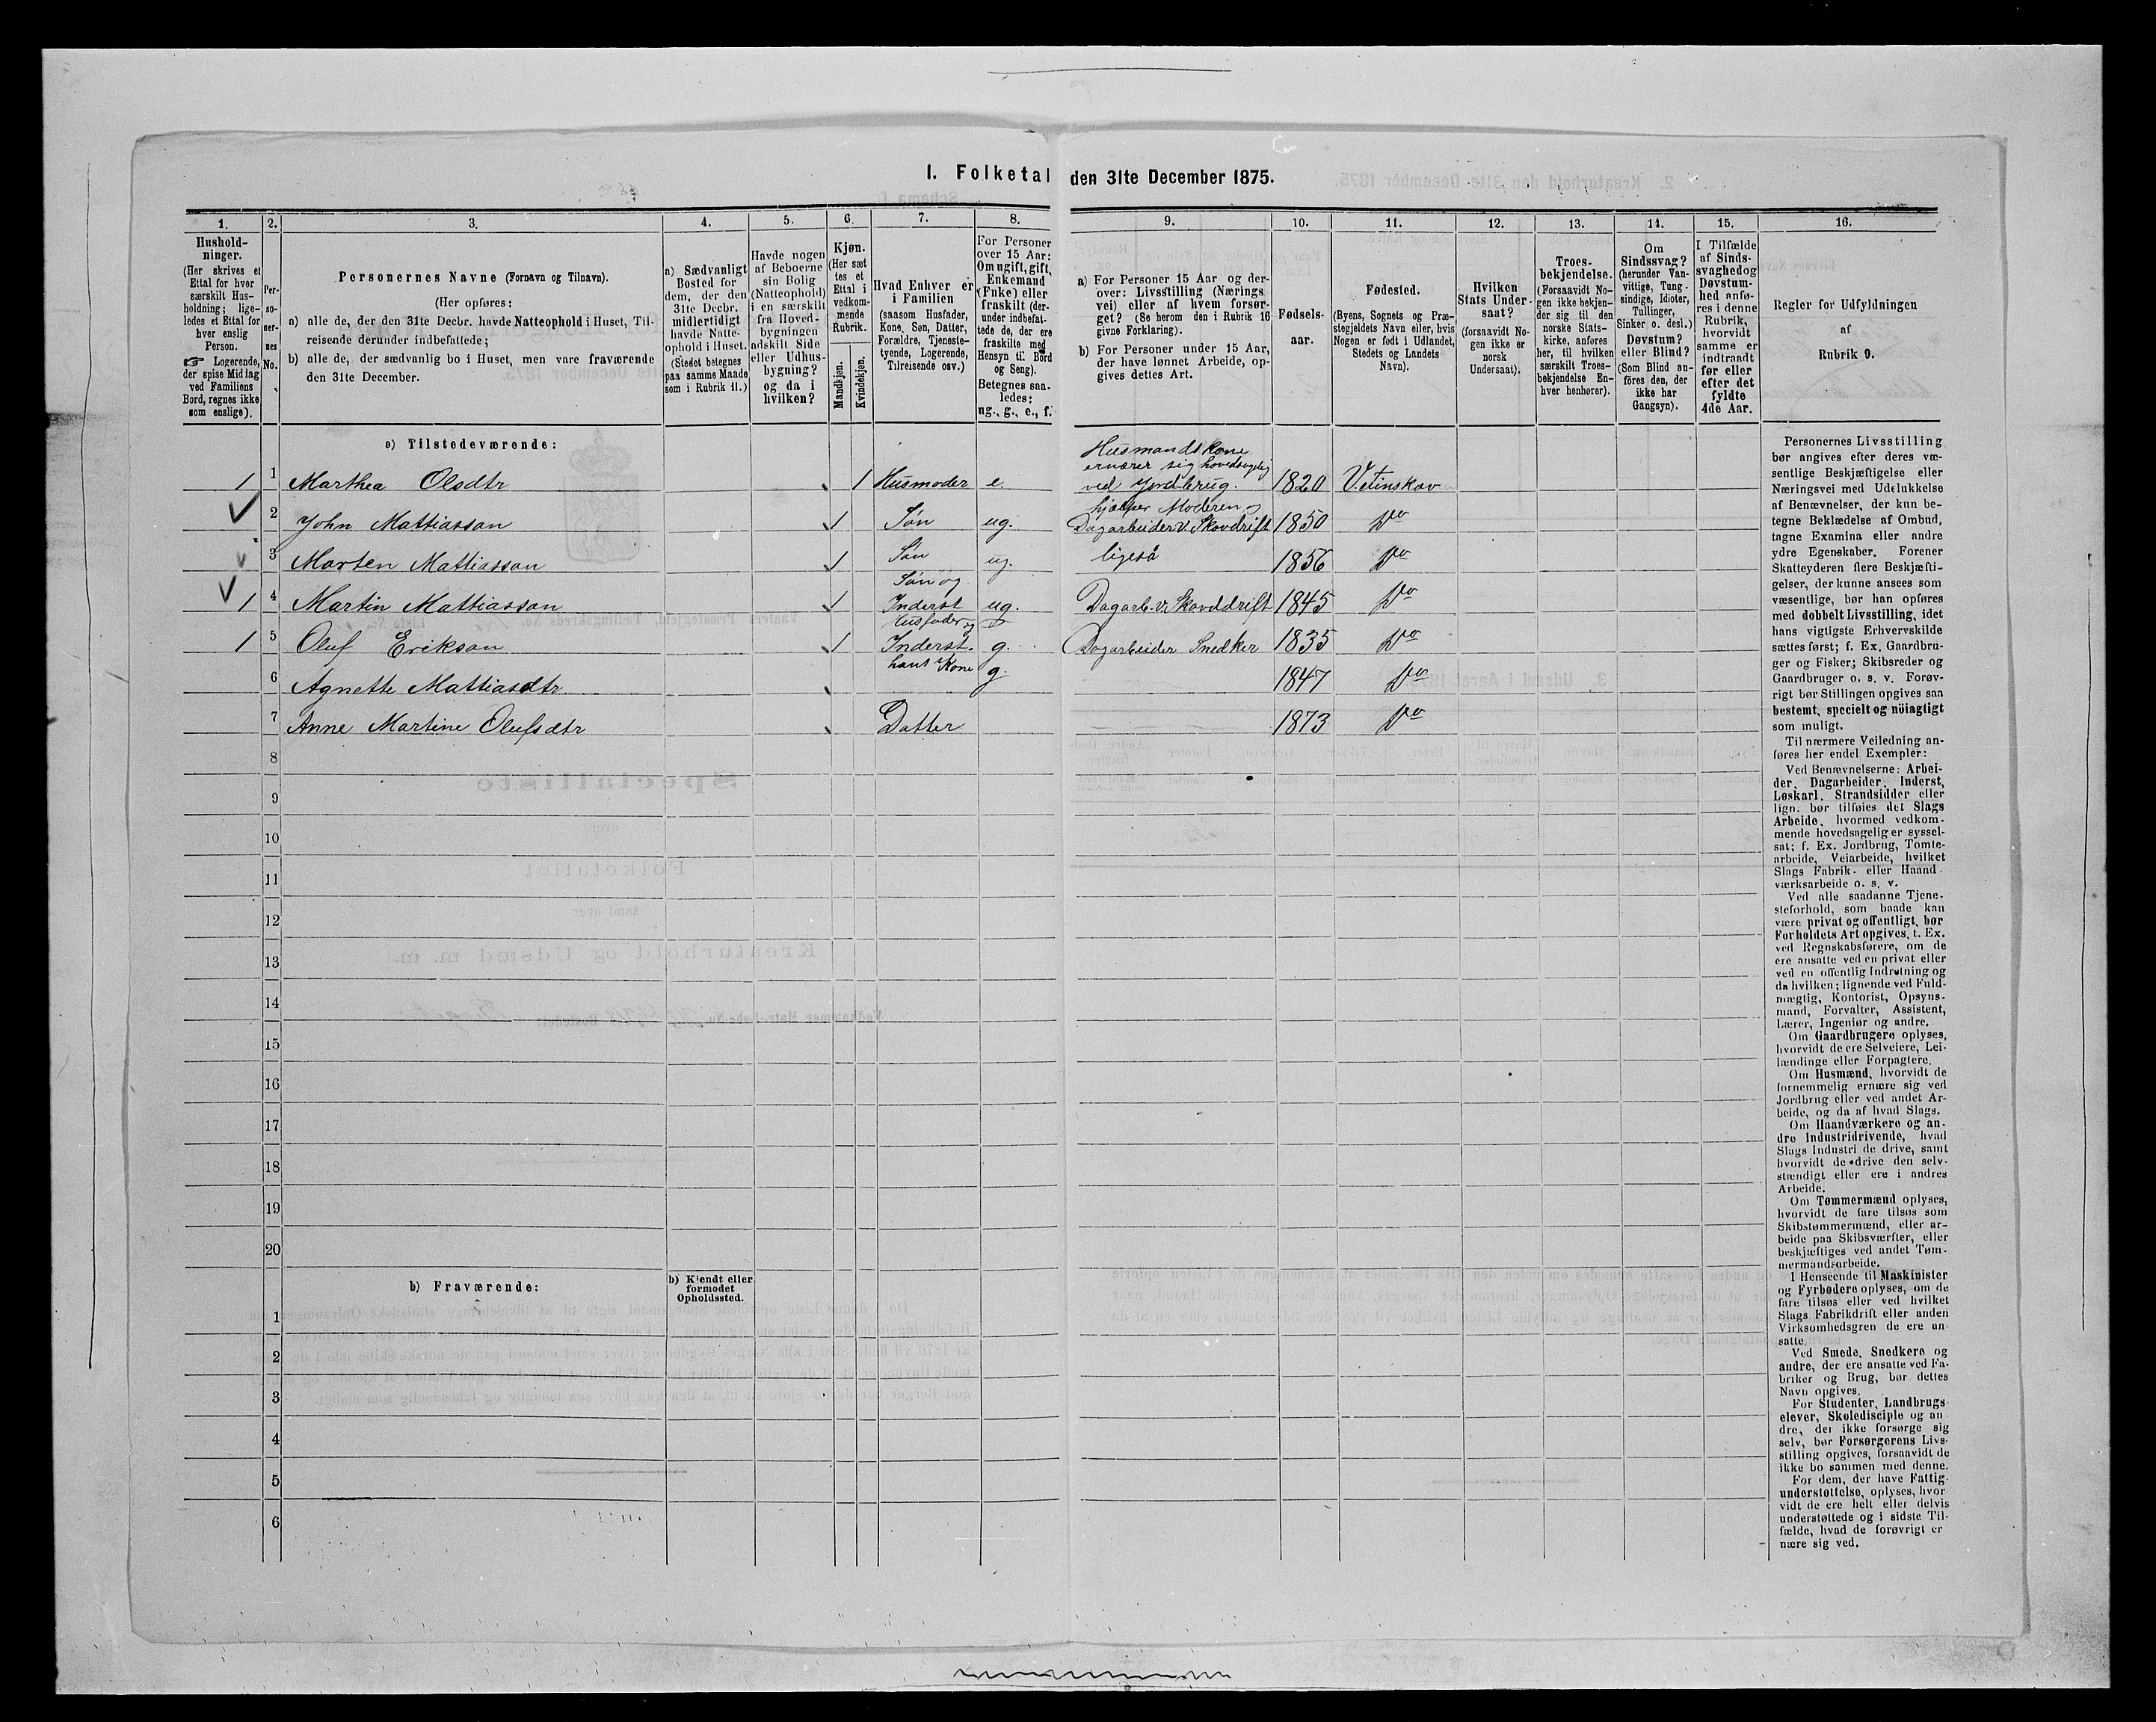 I. Folketal den 31te December 1875.
1. 2. 3. 4. 5. 6. 7. 8. 9. 10. 11. 12. 13. 14. 15. 16.
Hushold-
ninger.
(Her skrives et
Ettal for hver
særskilt Hus-
holdning; lige-
ledes et Ettal for
hver enslig
Person.
☞ Logerende,
der spise Middag
ved Familiens
Bord, regnes ikke
som enslige).
Per-
so-
ner-
nes
No.
Personernes Navne (Fornavn og Tilnavn).
(Her opføres:
a) alle de, der den 31te Decbr. havde Natteophold i Huset, Til-
reisende derunder indbefattede;
b) alle de, der sædvanlig bo i Huset, men vare fraværende
den 31te December.
a) Sædvanligt
Bosted for
dem, der den
31te Decbr.
midlertidigt
havde Natte-
ophold i Huset.
(Stedet betegnes
paa samme Maade
som i Rubrik 11.)
Havde nogen
af Beboerne
sin Bolig
(Natteophold)
i en særskilt
fra Hoved-
bygningen
adskilt Side
eller Udhus-
bygning?
og da i
hvilken?
Kjøn.
(Her sæt
tes et
Ettal i
vedkom-
mende
Rubrik.
Mandkjøn.
Kvindekjøn.
Hvad Enhver er
i Familien
(saasom Husfader,
Kone, Søn, Datter,
Forældre, Tjeneste-
tyende, Logerende,
Tilreisende osv.)
For Personer
over 15 Aar:
Om ugift, gift,
Enkemand
(Enke) eller
fraskilt (der-
under indbefat-
tede de, der ere
fraskilte med
Hensyn til Bord
og Seng).
Betegnes saa-
ledes:
ug., g., e., f.
a) For Personer 15 Aar og der-
over: Livsstilling (Nærings
vei) eller af hvem forsør-
get? (Se herom den i Rubrik 16
givne Forklaring).
b) For Personer under 15 Aar,
der have lønnet Arbeide, op-
gives dettes Art.
Fødsels-
aar.
Fødested.
(Byens, Sognets og Præ-
stegjeldets Navn eller, hvis
Nogen er født i Udlandet,
Stedets og Landets
Navn).
Hvilken
Stats Under-
saat?
(forsaavidt No-
gen ikke er
norsk
Undersaat).
Troes-
bekjendelse.
(Forsaavidt No-
gen ikke bekjen-
der sig til den
norske Stats-
kirke, anføres
her, til hvilken
særskilt Troes-
bekjendelse En-
hver henhører).
Om
Sindssvag?
(herunder Van-
vittige, Tung-
sindige, Idioter,
Tullinger,
Sinker o. desl.)
Døvstum?
eller Blind?
(Som Blind an-
føres den, der
ikke har
Gangsyn).
I Tilfælde
af Sinds-
svaghed og
Døvstum-
hed anfø-
res i denne
Rubrik,
hvorvidt
samme er
indtraadt
før eller
efter det
fyldte
4de Aar.
Regler for Udfyldningen
af
Rubrik 9.
a) Tilstedeværende:
Husmandskone
ernærer sig hovedsagelig
1 1 Marthea Olsdtr 1 Husmoder e. ved Jordbrug. 1820 V. Finskov
hjælper Moderen
2 John Mattiasson Søn ug. Dagarbeider v. Skovdrift 1850 Do
3 Morten Mattiasson Søn ug. ligeså 1856 Do
Søn og
1 4 Martin Mattiasson Inderst ug. Dagarb. v. Skovddrift 1845 Do
Husfader og
1 5 Oluf Erikson Inderst. g. Dagarbeider Snedker 1835 Do
hans Kone
6 Agnette Mattiasdtr g. 1847 Do
7 Anne Martine Olufsdtr Datter 1873 Do
8
9
10
11
12
13
14
15
16
17
18
19
20
b) Fraværende:
b) Kjendt eller
formodet
Opholdssted.
1
2
3
4
5
6
Personernes Livsstilling
bør angives efter deres væ-
sentlige Beskjæftigelse eller
Næringsvei med Udelukkelse
af Benævnelser, der kun be-
tegne Beklædelse af Ombud,
tagne Examina eller andre
ydre Egenskaber. Forener
Skatteyderen flere Beskjæfti-
gelser, der kunne ansees som
væsentlige, bør han opføres
med dobbelt Livsstilling, idet
hans vigtigste Erhvervskilde
sættes først; f. Ex. Gaardbru-
ger og Fisker; Skibsreder og
Gaardbruger o. s. v. Forøv-
rigt bør Stillingen opgives saa
bestemt, specielt og nöiagtigt
som muligt.
Til nærmere Veiledning an-
føres her endel Exempler:
Ved Benævnelserne: Arbei-
der, Dagarbeider, Inderst,
Løskarl, Strandsidder eller
lign. bør tilføies det Slags
Arbeide, hvormed vedkom-
mende hovedsagelig er syssel-
sat; f. Ex. Jordbrug, Tomte-
arbeide, Veiarbeide, hvilket
Slags Fabrik- eller Haand-
værksarbeide o. s. v.
Ved alle saadanne Tjene-
steforhold, som baade kan
være privat og offentligt, bør
Forholdets Art opgives, t. Ex.
ved Regnskabsførere, om de
ere ansatte ved en privat eller
ved en offentlig Indretning og
da hvilken; lignende ved Fuld-
mægtig, Kontorist, Opsyns-
mand, Forvalter, Assistent,
Lærer, Ingeniør og andre.
Om Gaardbrugere oplyses,
hvorvidt de ere Selveiere, Lei-
lændinge eller Forpagtere.
Om Husmænd, hvorvidt de
fornemmelig ernære sig ved
Jordbrug eller ved andet Ar-
beide, og da af hvad Slags.
Om Haandværkere og an-
dre Industridrivende, hvad
Slags Industri de drive, samt
hvorvidt de drive den selv-
stændigt eller ere i andres
Arbeide.
Om Tømmermænd oplyses,
hvorvidt de fare tilsøs som
Skibstømmermænd, eller ar-
beide paa Skibsværfter, eller
beskjæftiges ved andet Tøm-
mermandsarbeide.
I Henseende til Maskinister
og Fyrbødere oplyses, om de
fare tilsøs eller ved hvilket
Slags Fabrikdrift eller anden
Virksomhedsgren de ere an-
satte.
Ved Smede, Snedkere og
andre, der ere ansatte ved Fa-
briker og Brug, bør dettes
Navn opgives.
For Studenter, Landbrugs-
elever, Skoledisciple og an-
dre, der ikke forsørge sig
selv, bør Forsørgerens Livs-
stilling opgives, forsaavidt de
ikke bo sammen med denne.
For dem, der have Fattig-
understøttelse, oplyses, hvor-
vidt de ere helt eller delvis
understøttede og i sidste Til-
fælde, hvad de forøvrigt er-
nære sig ved.